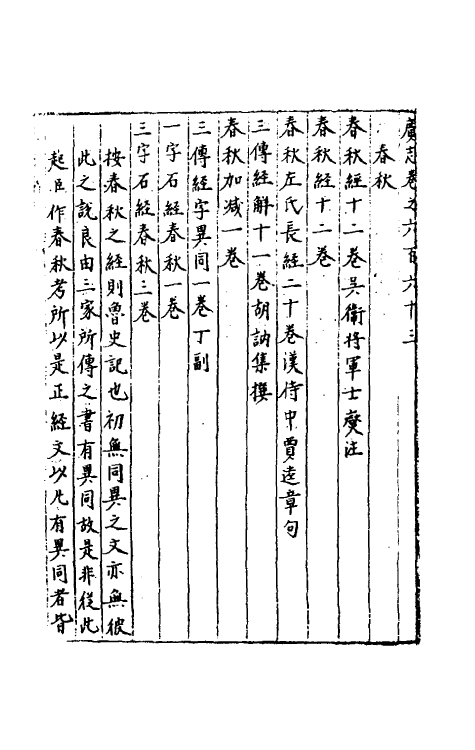 廣志卷之六百六十三
春秋
春秋經十二卷吳衛將軍士燮注
春秋經十二卷
春秋左氏長經二十卷漢侍中賈逵章句
三傳經解十一卷胡訥集撰
春秋加減一卷
三傳經字異同一卷丁副
一字石經春秋一卷
三字石經春秋三卷
按春秋之經則魯史記也初無同異之文亦無彼
此之說良由三家所傳之書有異同故是非從此
起臣作春秋考所以是正經文以凡有異同者皆